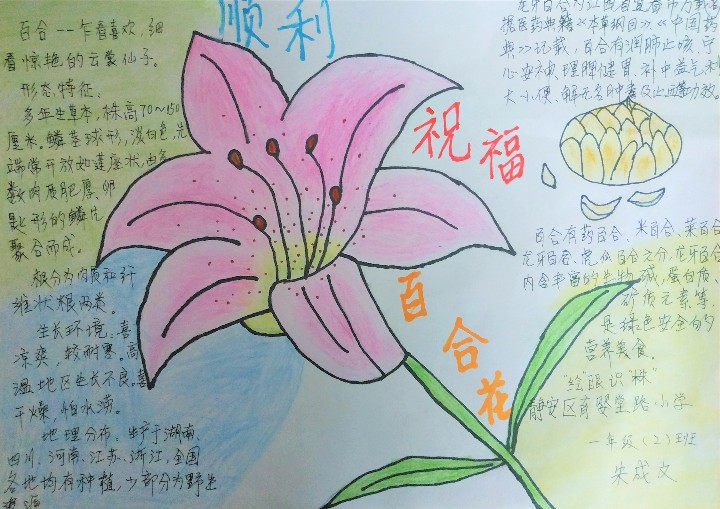 顺利
祝福
百合花
百合--乍看喜欢,细
看惊艳的云裳仙子。
形态特征:
多年生草本,株高70~150
厘米,鳞茎球形,淡白色,先
端常开放如莲座状,由多
数肉质肥厚、卵
匙形的鳞片
聚合而成。
根分为肉质和纤
维状根两类。
生长环境:喜
凉爽,较耐寒。高
温地区生长不良,喜
干燥,怕水涝。
地理分布:生产于湖南、
四川、河南、江苏、浙江,全国
各地均有种植,少部分为野生
据医药典籍《本草纲目》《中国药
典》记载,百合有润肺止咳、宁
心安神、理脾健胃、补中益气、利
大小便
百合有药百合、米百合、菜百合
龙牙百合、虎爪百合之分,龙牙百合
内含丰富的生物碱,蛋白质、
矿质元素等,
是绿色安全的
营养美食。
"绘"眼识"株"
静安区育婴堂路小学
一年级(2)班
朱成文